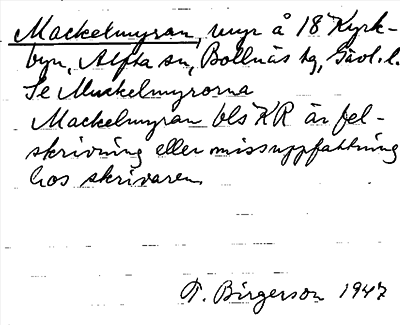 Mackelmyran, myr å 18 Kyrk-
byn, Alfta sn, Bollnäs tg, Gävl. l.
Se Muckelmyrorna
Mackelmyran bls KR är fel-
skrivning eller missuppfattning
hos skrivaren
T. Birgerson 1947